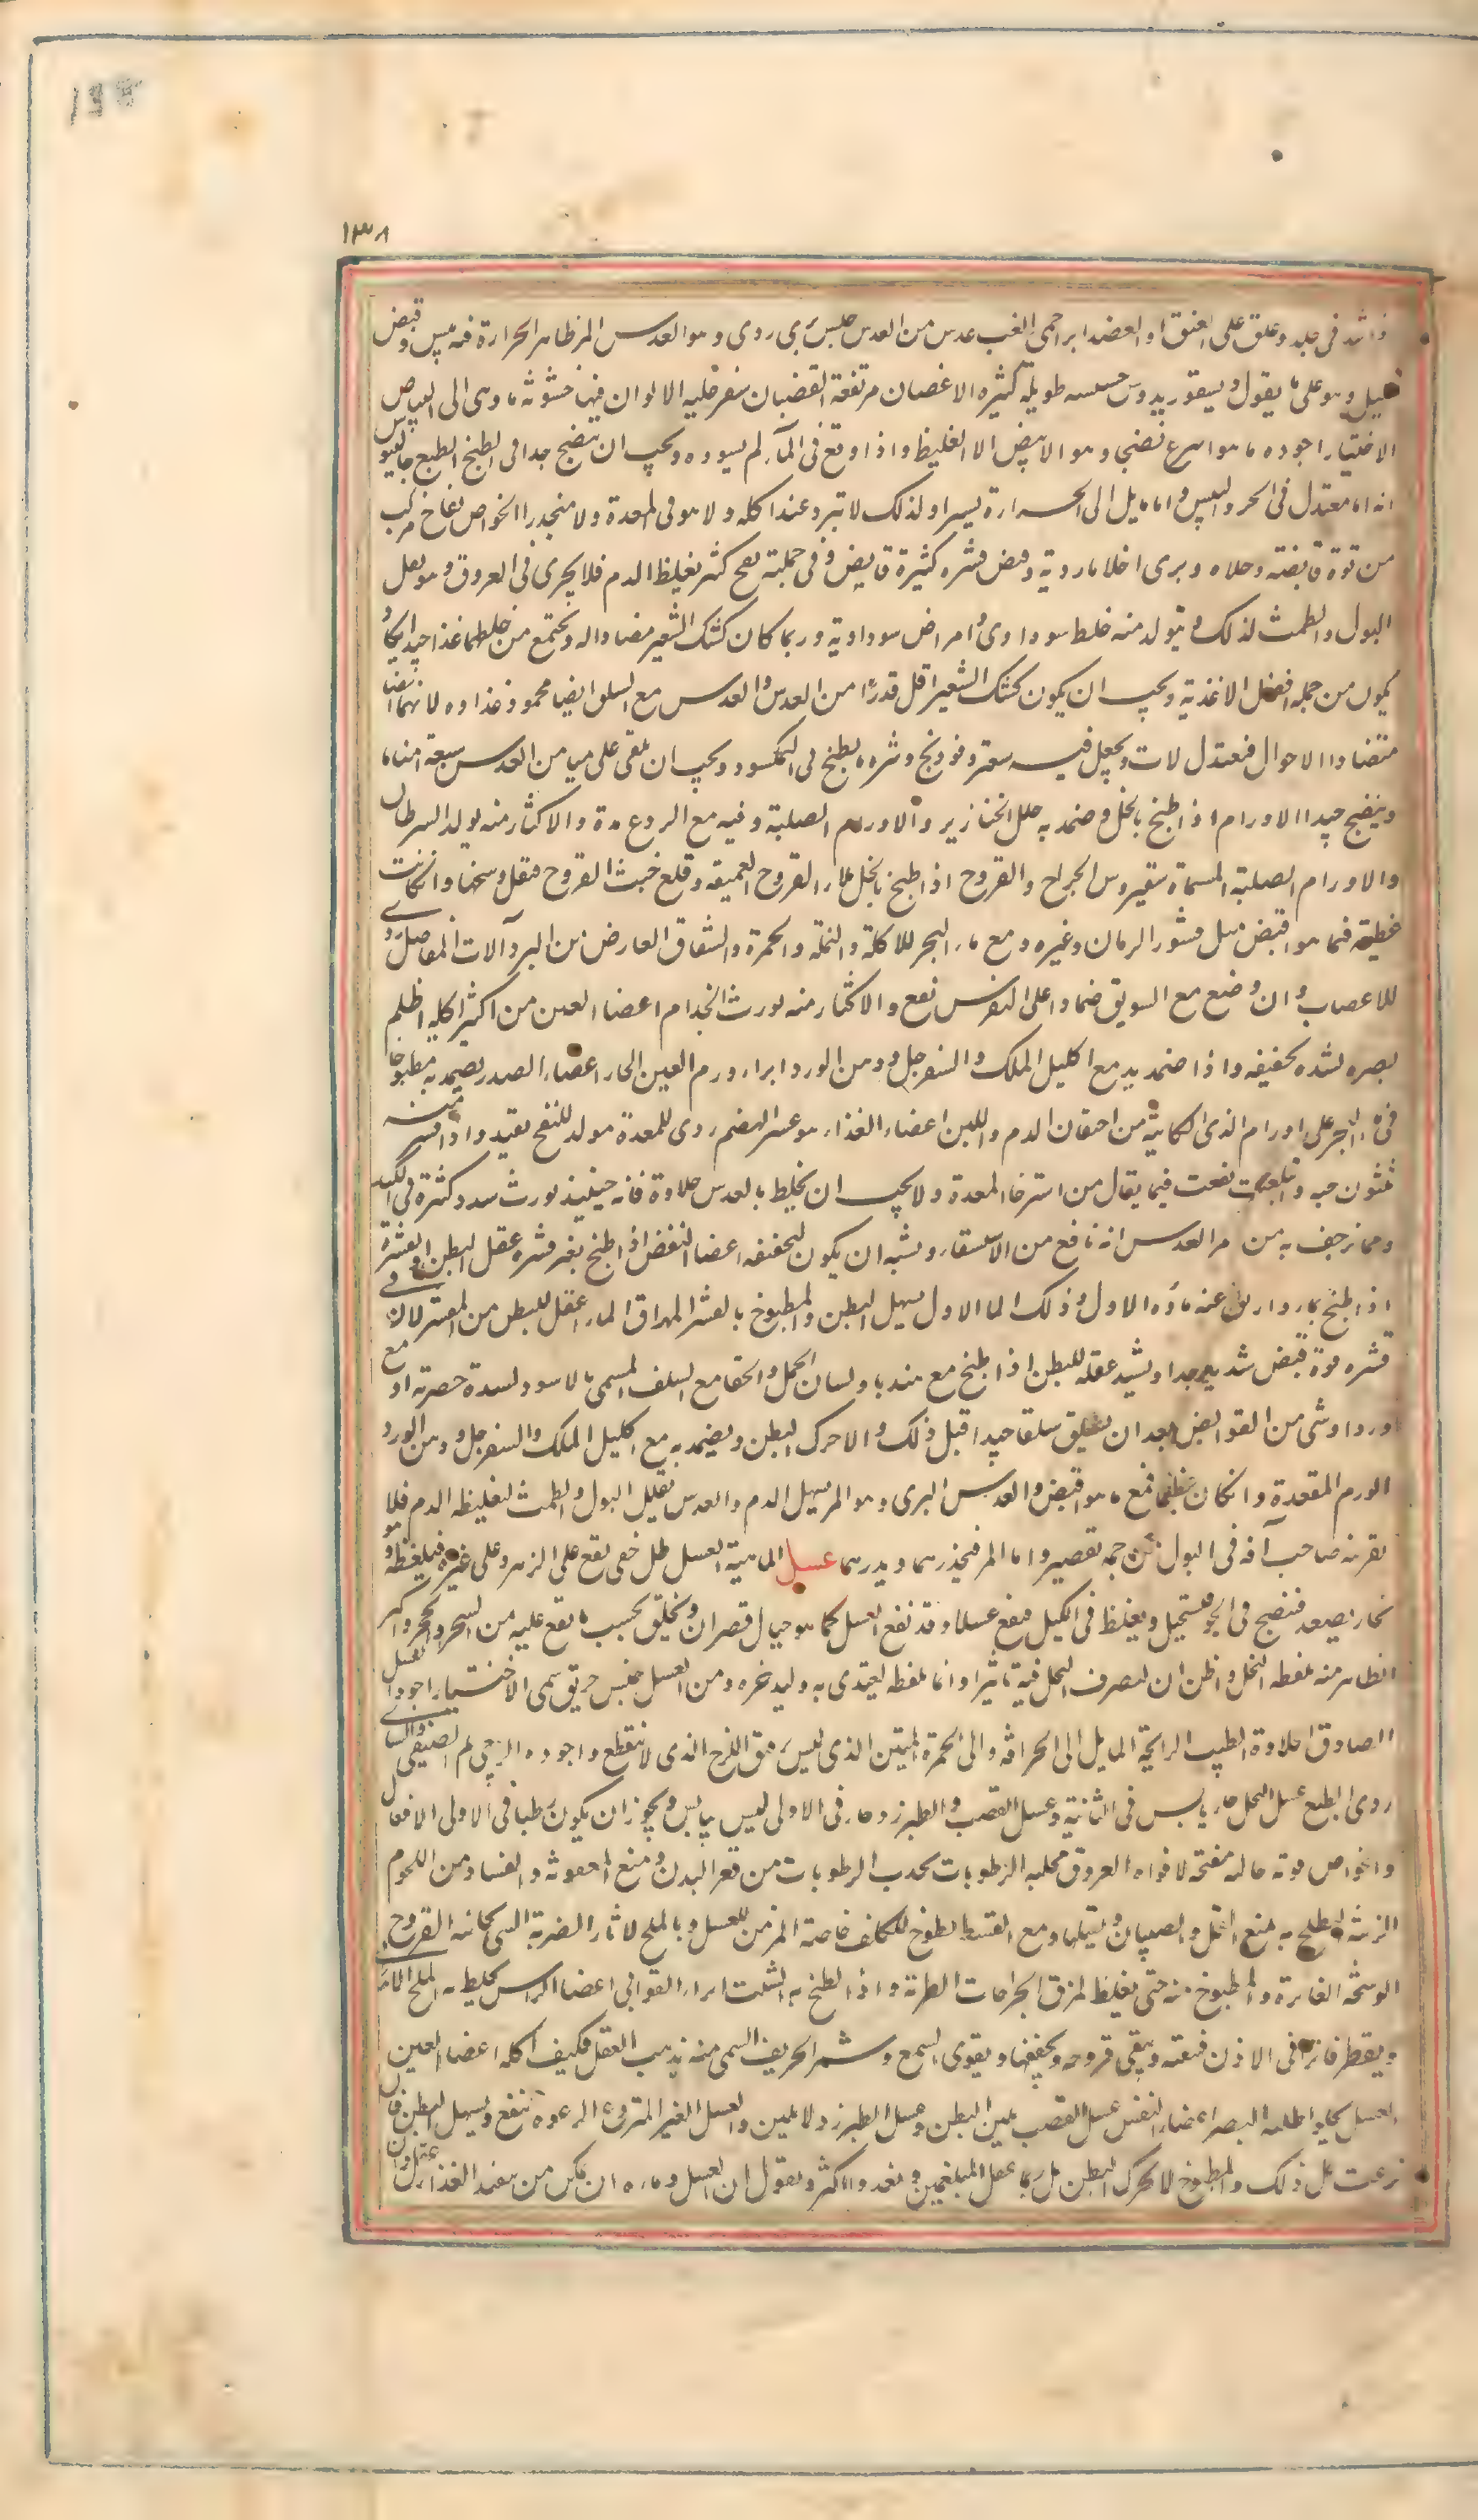 ١٣٨
واشد في جلد وعلق على العنق او العضد ابرا حمى الغب عدس من العدس جلبس بري ردي وهو العدس المر ظاهر الحرارة فيه يبس وقبض
وهو على ما يقول ديسقوريدوس حسسه طويلة كثيرة الاغصان مرتفعة القضبان سفرجلية الالوان فيها خشونة ما وهي الى البياض
الاختيار اجوده ما هو اسرع نضجا وهو الابيض الا الغليظ واذا وقع في الماء لم يسوده ويجب ان ينضج جدا في الطبخ الطبع جالينوس
انه اما معتدل في الحر واليبس واما مايل الى الحرارة يسيرا ولذلك لا تبرد عند اكله ولا هو في المعدة ولا منحدرا الخواص نفاخ مركب
من قوة قابضة وجلاه ويرى اخلاما ردية وقبض قشره كثيرة قابض وفي جملته نفح كثير يغلظ الدم فلا يجري في العروق وهو يقل
البول والطمث لذلك ويتولد منه خلط سوداوي وامراض سوداوية وربما كان كشك الشعير مضادا له ويجتمع من خلطهما غذا جيد
يكون من جملة افضل الاغذية ويجب ان يكون كشك الشعير اقل قدرا من العدس والعدس مع السلق ايضا محمود وغذاوه لانهما ايضا
متضادا الاحوال فيعتدل لات ويجعل فيه سعتر وفودنج وشره ما يطبخ في النمكسود ويجب ان يلقى على ما من العدس سبعة امناء ماء
وينضج جيدا الاورام اذا طبخ بالخل وضمد به حلل الخنازير والاورام الصلبة وفيه مع الردع مدة والاكثار منه يولد السرطان
والاورام الصلبة المسماة سقيروس الجراح والقروح اذا طبخ بالخل ملا القروح العميقة وقلع خبث القروح فيقل وسخها وان كانت
عظيمة فما هو اقبض مثل قشور الرمان وغيره ومع ماء البحر للاكلة والنملة والحمرة والشقاق العارض من البرد آلات المفاصل ردي
للاعصاب وان وضع مع السويق ضمادا على النقرس نفع والاكثار منه يورث الجذام اعضاء العين من اكثر اكله اظلم
بصره لشدة تجفيفه واذا ضمد به مع اكليل الملك والسفرجل ودهن الورد ابراء ورم العين الحار اعضاء الصدر يضمد به مطبوخا
في ماء البحر على اورام الثدى الكاينة من احتقان الدم واللبن اعضاء الغذاء هو عسر الهضم ردي للمعدة مولد للنفخ ثقيل واذا قشر
ثلثون حبه وابتلعت نفعت فيما يقال من استرخا المعدة ولا يجب ان يخلط بالعدس حلاوة فانه حينئذ يورث سدد كثيرة في الكبد
ومما زحف به من مر العدس انه نافع من الاستسقاء ويشبه ان يكون لتجفيفه اعضا النفض اذا طبخ بغير قشره عقل البطن
اذا طبخ بماء واريق عنه ماؤه الاول وذلك الماء الاول يسهل البطن والمطبوخ بالقشر المهراق الماء اعقل للبطن من المقشر لان في
قشره قوة قبض شديد جدا ويشتد عقله للبطن اذا طبخ مع هندبا ولسان الحمل والحقا مع السلق المسمى بالاسود لشدة خضرته او مع
وردا وشي من القوابض بعد ان يسلق سلقا جيدا قبل ذلك والا حرك البطن ويضمد به مع اكليل الملك والسفرجل ودهن الورد
الورم المقعدة وان كان عظيما فمع ما هو اقبض والعدس البري وهو المر يسهل الدم والعدس تقليل البول والطمث لتغليظ الدم فلا
يقربنه صاحب آفة في البول من جهة تقصير واما المر فيحذرهما ويدرهما عسل الماهية العسل طل خفي يقع على الزهر وعلى غيره فيلقطه وهو
بخار يصعد فينضج في الجو فيستحيل ويغلظ في الليل فيقع عسلا وقد يقع العسل كما هو جبال قصران ويختلف بحسب ما يقع عليه من الشجر والحجر واكثر
الظاهر منه يلقطه النحل واظن ان لتصرف النحل فيه تاثيرا وانما يلقطه ليغتذي به وليدخره ومن العسل جنس حريف سمي الاختيار اجود العسل
الصادق الحلاوة الطيب الرايحة المايل الى الحرافة والى الحمرة المتين الذي ليس برقيق اللزج الذي لا ينقطع واجوده الربيعي ثم الصيفي والشتا
ردي الطبع عسل النحل حار يابس في الثانية وعسل القصب والطبرزد حار في الاولى ليس بيابس ويجوز ان يكون رطبا في الاولى الافعال
والخواص قوته جالية مفتحة لافواه العروق محللة الرطوبات يجذب الرطوبات من قعر البدن ومنع العفونة والفساد من اللحوم
الزينة التلطخ به يمنع القمل والصيبان ويقتلها ومع القسط لطوخ للكلف خاصة المزمن للعسل وبالملح لاثار الضربة الباذنجانية القروح
الوسخة الغايرة والمطبوخ منه حتى يغلظ يلزق الجراحات الطرية واذا لطخ به الشبت ابراء القوابي اعضا الراس يخلط به الملح
ويقطر فاترا في الاذن فينقيه وينقي قروحه ويجففها ويقوي السمع وشم الحريف السمي منه يذهب العقل فكيف اكله اعضا العين
العسل يجلو ظلمة البصر اعضاء النفس عسل القصب يلين البطن وعسل الطبرزد لا يلين والعسل الغير المنزوع الرغوة ينفخ ويسهل البطن فان
نزعت قل ذلك والمطبوخ لا يحرك البطن بل ربما عقل المبلغمين ويغذو اكثر ويقول ان العسل وماءه ان تمكن من تنفيذ الغذاء عقل وان